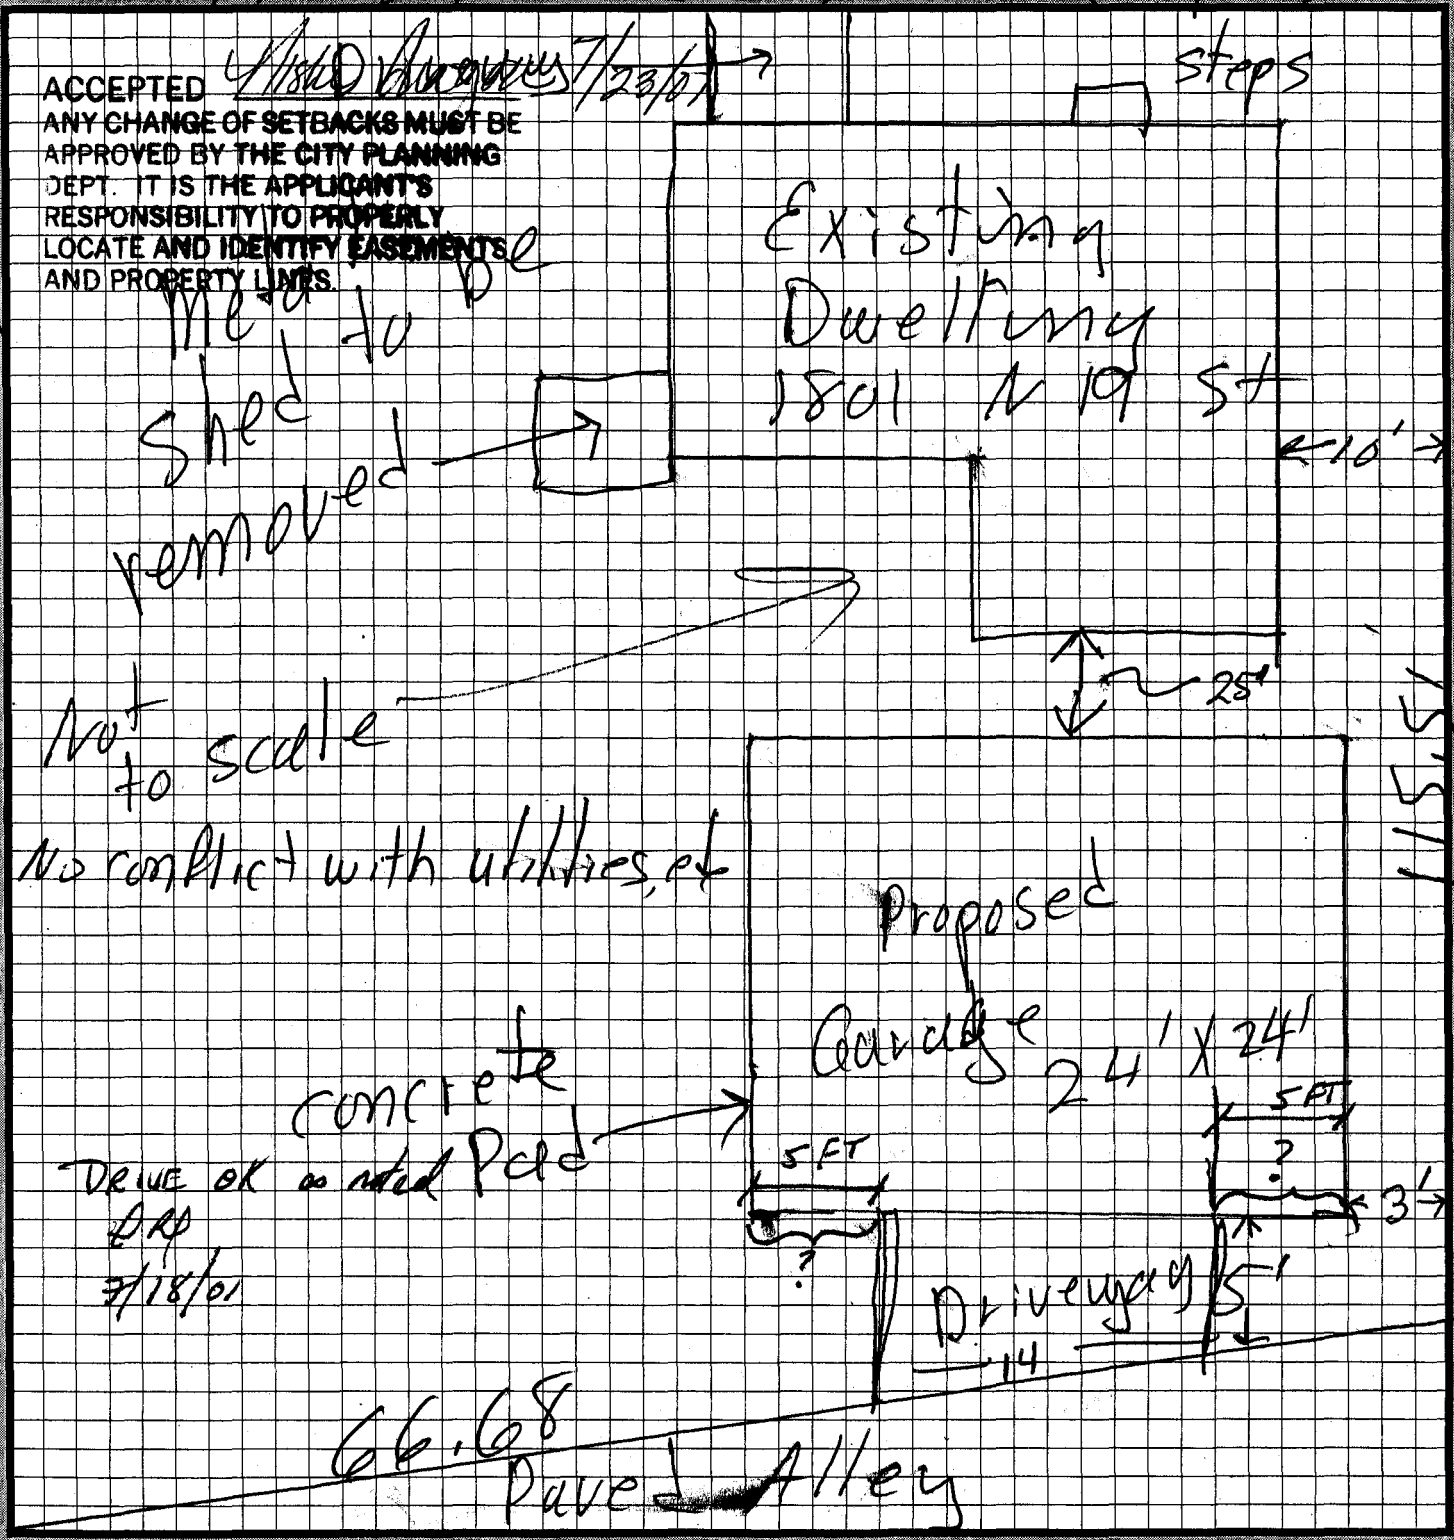 ACCEPTED 7/23/01
ANY CHANGE OF SETBACKS MUST BE
APPROVED BY THE CITY PLANNING
DEPT. IT IS THE APPLICANT'S
RESPONSIBILITY TO PROPERLY
LOCATE AND IDENTIFY EASEMENTS
AND PROPERTY LINES.
steps
Existing
Dwelling
1801 N 19 St
Metal
shed to be
removed
10'
25'
Not
to scale
No conflict with utilities, et
Proposed
Garage
24' X 24'
concrete
Pad
5 FT
?
5 FT
?
3'
DRIVE OK as noted
7/18/01
Driveway
14
5'
66.68
Paved Alley